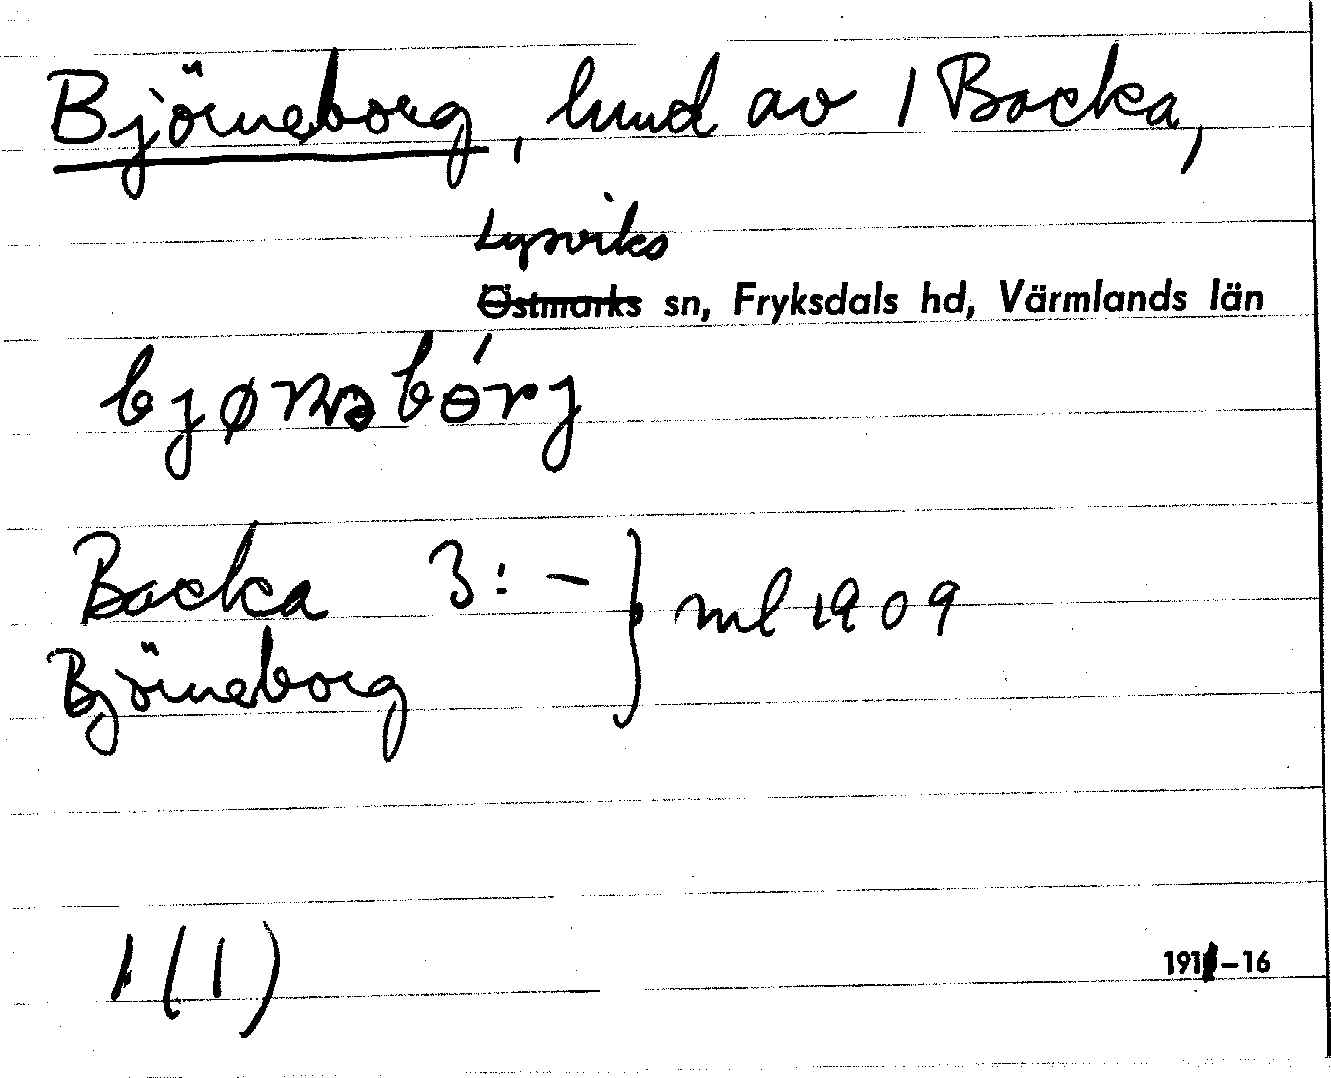 Björneborg, lund av 1 Backa,
Lysviks
Östmarks sn, Fryksdals hd, Värmlands län
bjørnəbɵ́rj
Backa 3:- } ml 1909
Björneborg
1 (1)
1911-16